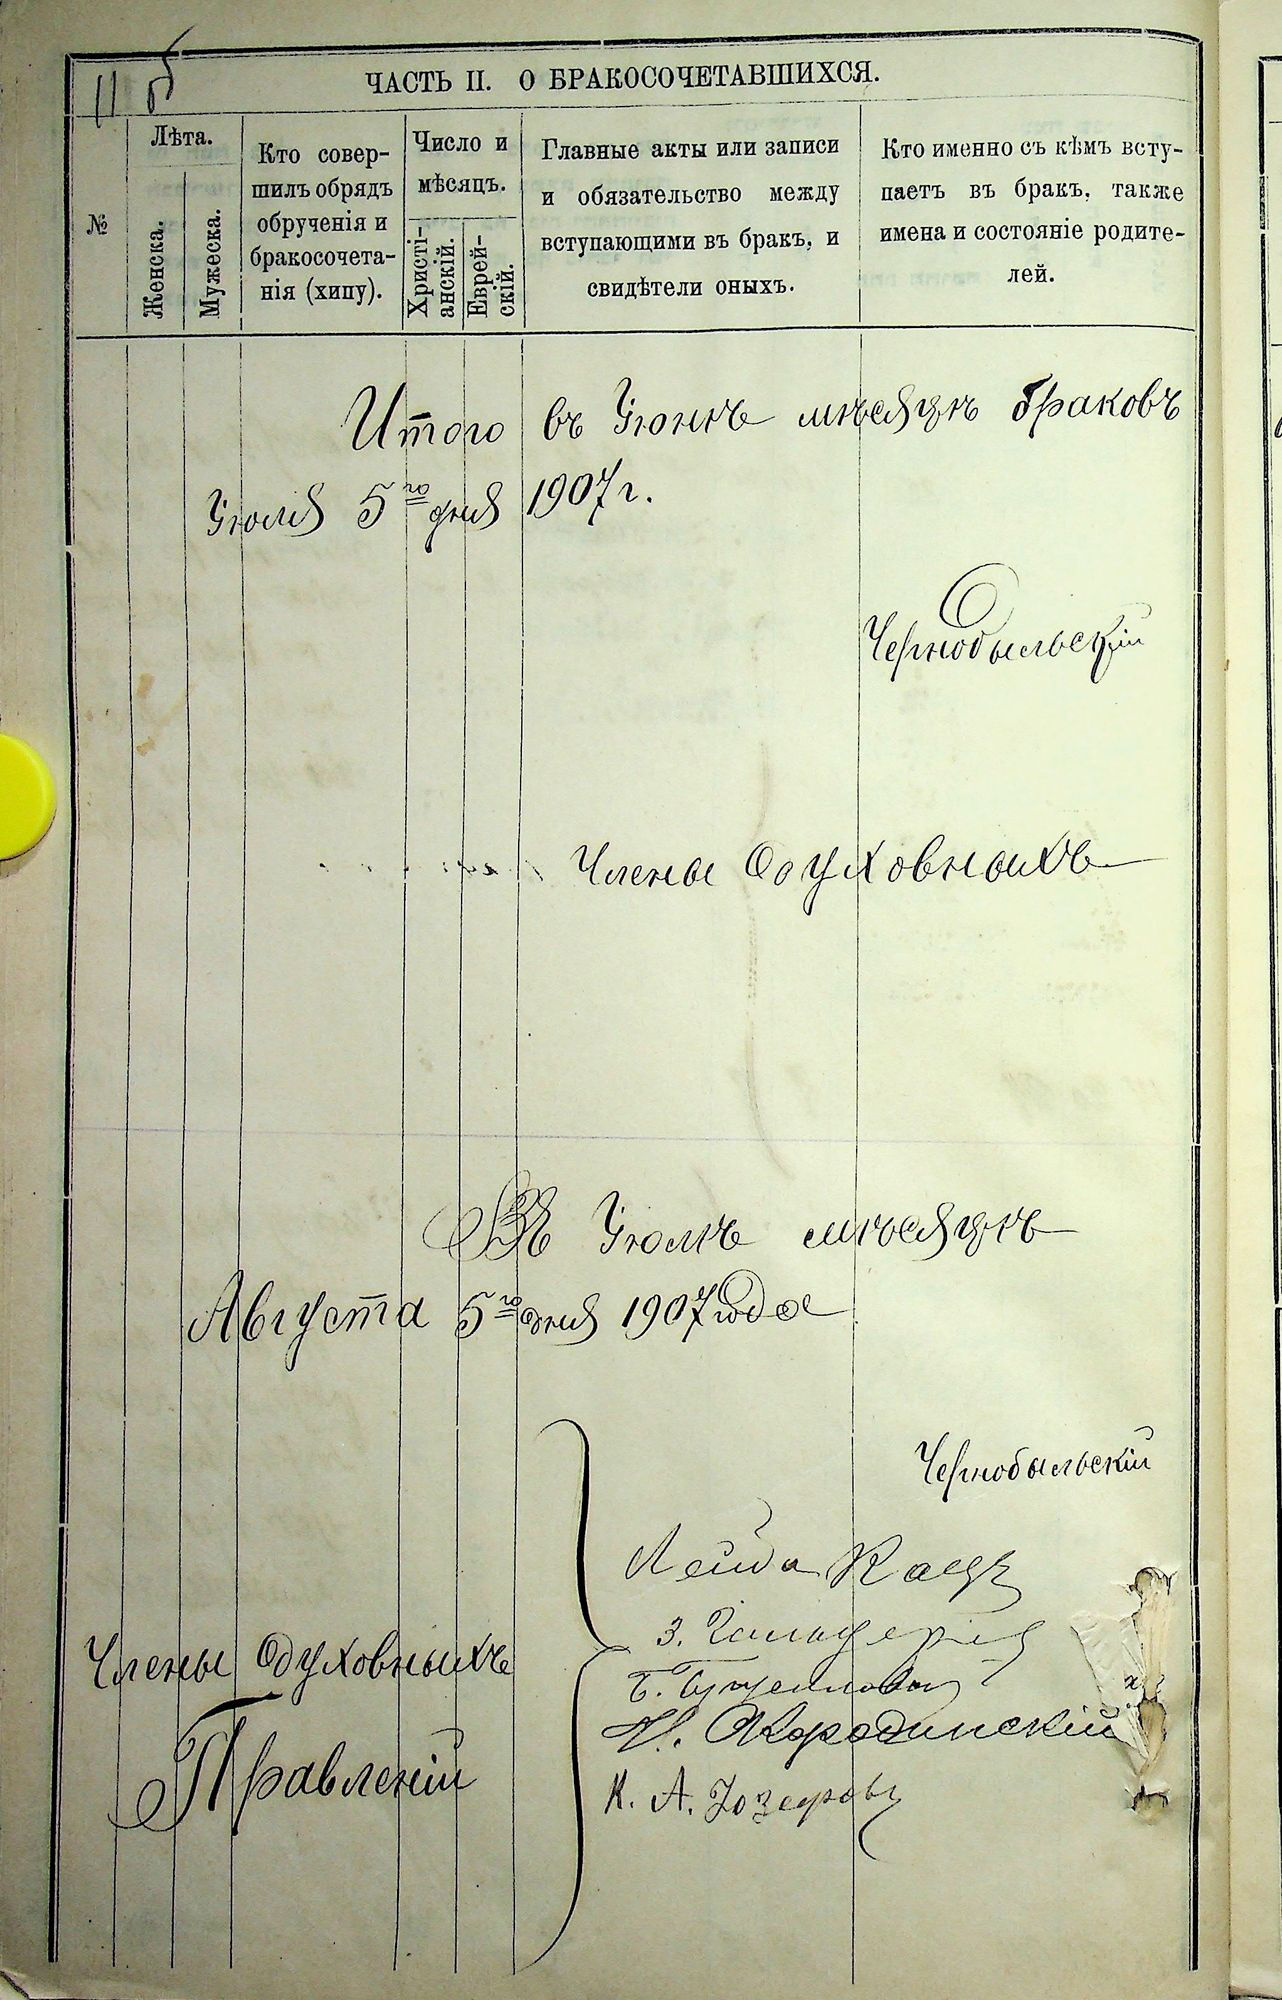 11 об
ЧАСТЬ II. О БРАКОСОЧЕТАВШИХСЯ.
№
Лѣта.
Женска.
Мужеска.
Кто совер-
шилъ обрядъ
обрученія и
бракосочета-
нія (хипу).
Число и
мѣсяцъ.
Христі-
анскій.
Еврей-
скій.
Главные акты или записи
и обязательство между
вступающими въ бракъ, и
свидѣтели оныхъ.
Кто именно съ кѣмъ всту-
паетъ въ бракъ, также
имена и состояніе родите-
лей.
Итого въ Іюнѣ мѣсяцѣ браковъ
Іюля 5го дня 1907 г.
Чернобыльскій
Члены духовныхъ
Въ Іюлѣ мѣсяцѣ
Августа 5го дня 1907 года
Чернобыльскій
Кацъ
З.
Б.
Члены духовныхъ
Правленій
Н. Скородинскій
К. А. Іозефовъ